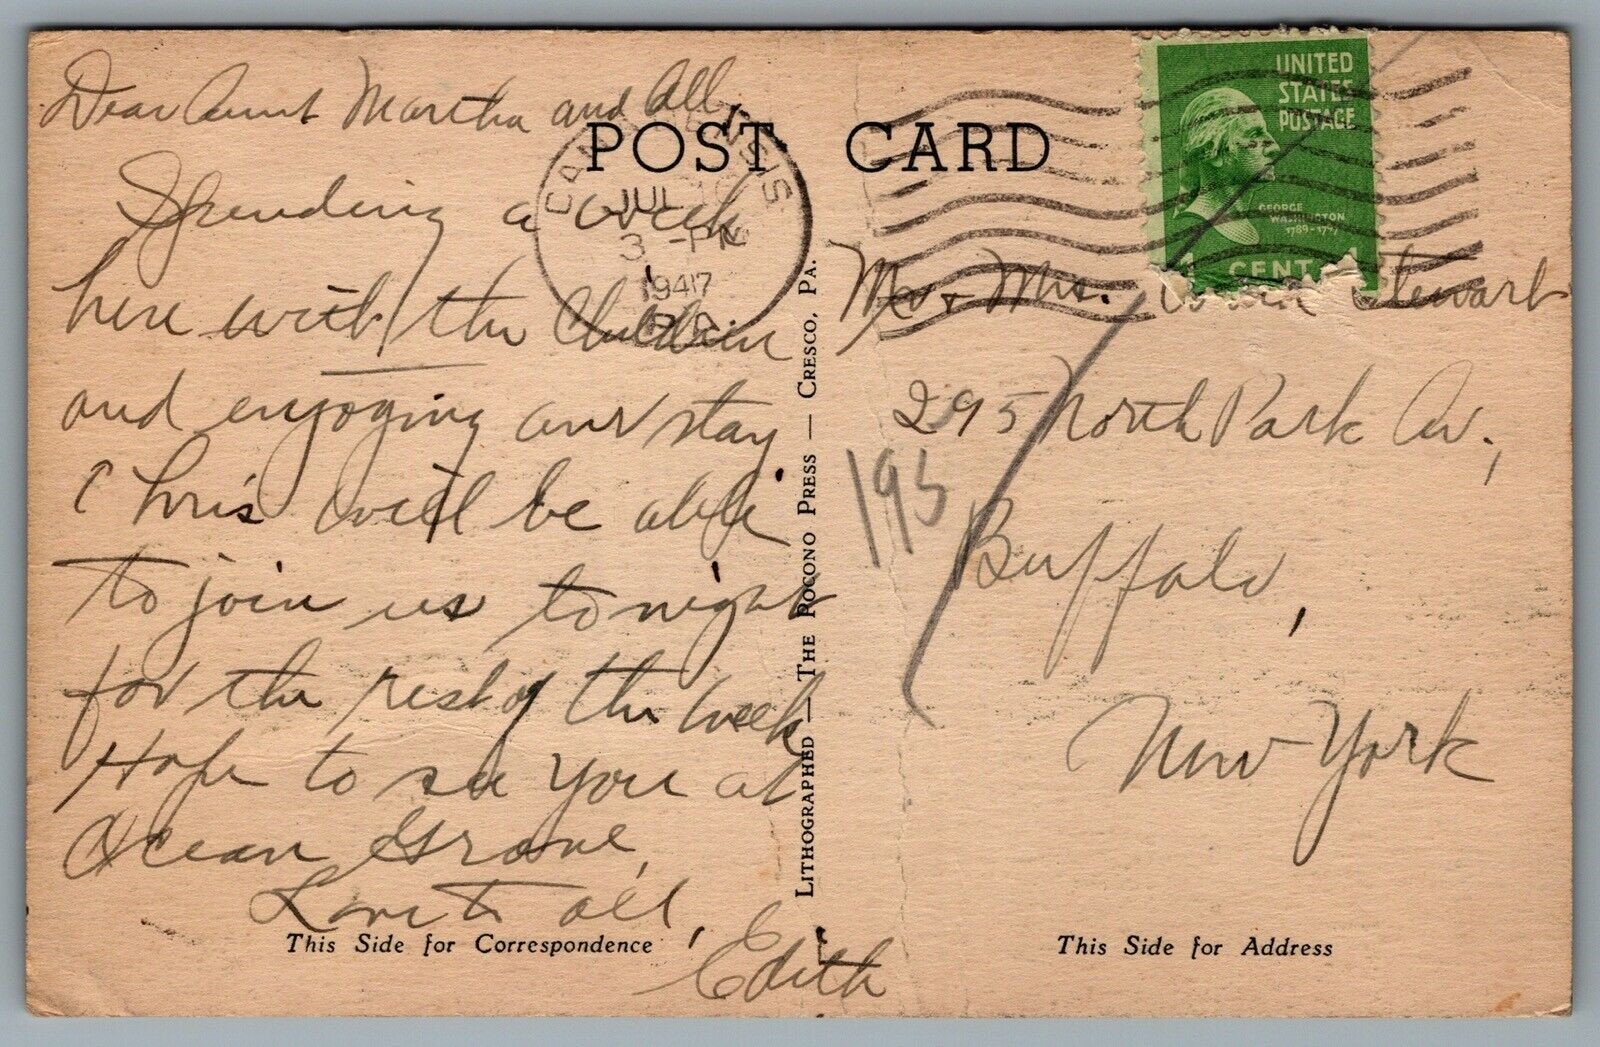 Dear Aunt Martha and All,
Spending a week
here with the Children
and enjoying our stay
Chris will be able
to join us tonight
for the rest of the week
Hope to see you at
Ocean Grove,
Love to all,
Edith
This Side for Correspondence
POST CARD
CANADENSIS
JUL
3 -PM
1947
PA.
LITHOGRAPHED — THE POCONO PRESS — CRESCO, PA.
UNITED
STATES
POSTAGE
GEORGE
WASHINGTON
1789-1797
1 CENT
Mr & Mrs. Stewart
295 North Park Av.,
195
Buffalo,
New York
This Side for Address